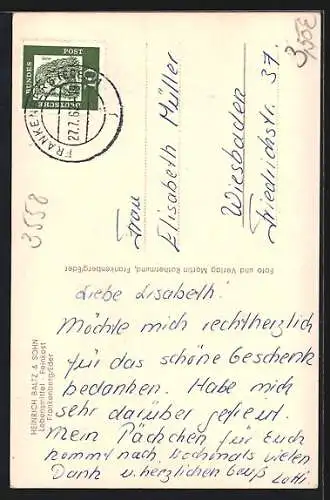 3,50€
DEUTSCHE
BUNDES
POST
10
FRANKEN
27.7.6
Frau
Elisabeth Müller
Wiesbaden
Friedrichstr. 37.
3558
Foto und Verlag Martin Rothemund, Frankenberg/Eder
HEINRICH BALTZ & SOHN
Lebensmittel · Feinkost
Frankenberg/Eder
Liebe Lisabeth!
Möchte mich rechtherzlich
für das schöne Geschenk
bedanken. Habe mich
sehr darüber gefreut.
Mein Päckchen für Euch
kommt nach. Nochmals vielen
Dank u. herzlichen Gruß
Lotti